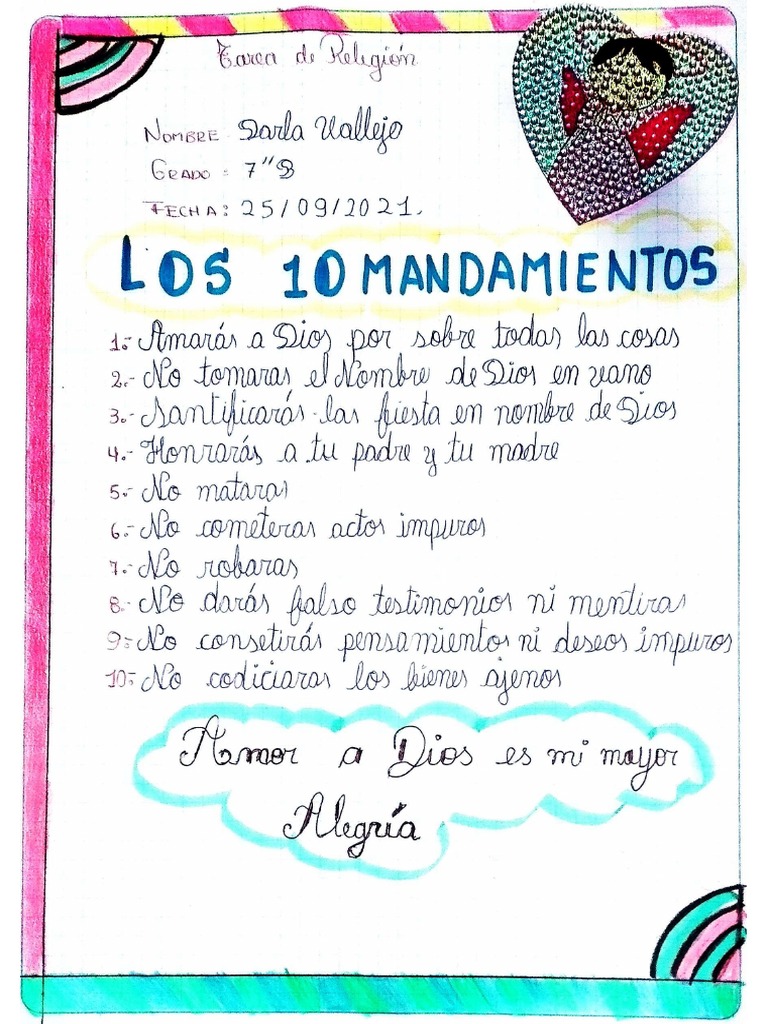 Tarea de Religión
NOMBRE Darla Vallejo
GRADO: 7"B
FECHA: 25/09/2021.
LOS 10 MANDAMIENTOS
1.- Amarás a Dios por sobre todas las cosas
2.- No tomaras el Nombre de Dios en vano
3.- Santificarás las fiesta en nombre de Dios
4.- Honrarás a tu padre y tu madre
5.- No mataras
6.- No cometeras actos impuros
7.- No robaras
8.- No darás falso testimonios ni mentiras
9.- No consetirás pensamientos ni deseos impuros
10.- No codiciaras los bienes ajenos
Amor a Dios es mi mayor
Alegría